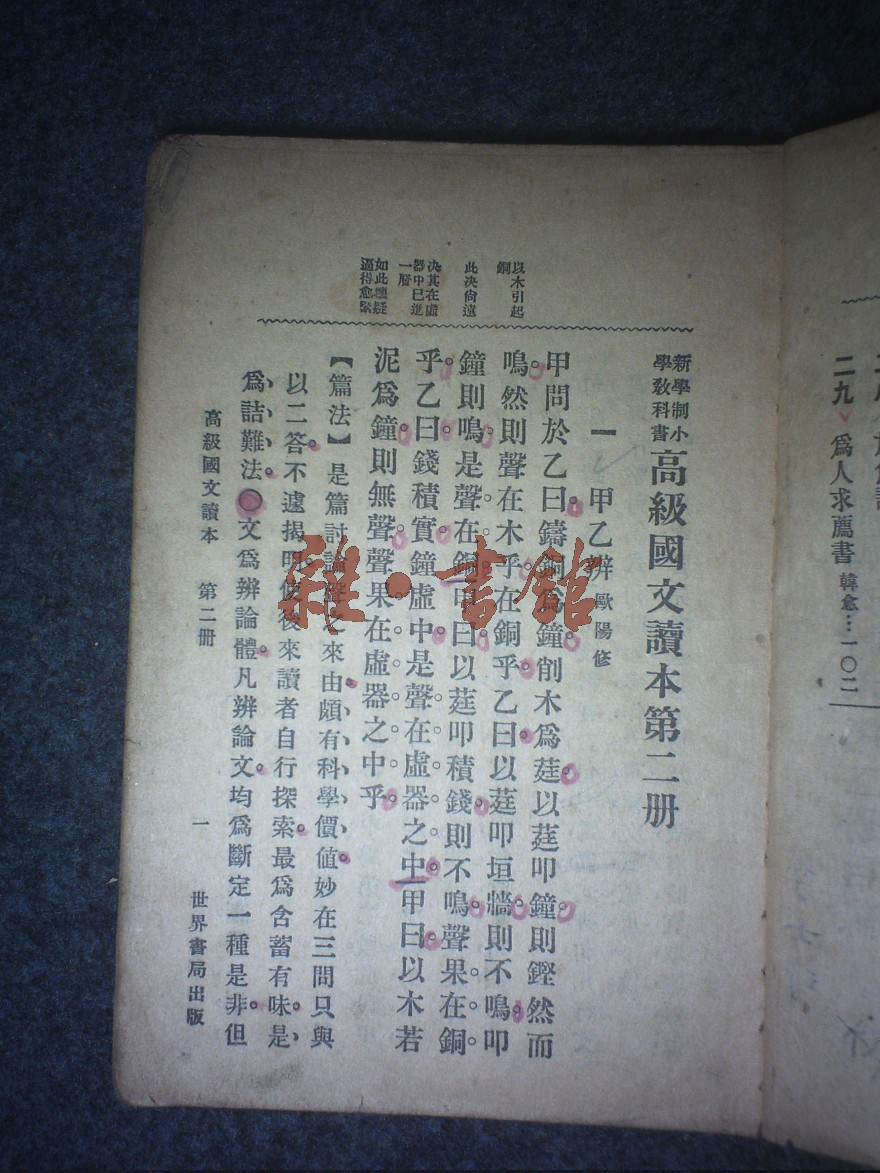 二九、爲人求薦書 韓愈…一〇二
新學制小學教科書 高級國文讀本第二册
一 甲乙辨 歐陽修
甲問於乙曰。鑄銅爲鐘。削木爲莛。以莛叩鐘。則鏗然而
鳴。然則聲在木乎。在銅乎。乙曰。以莛叩垣牆。則不鳴。叩
鐘則鳴。是聲在銅。甲曰。以莛叩積錢。則不鳴。聲果在銅
乎。乙曰。錢積實。鐘虛中。是聲在虛器之中。甲曰。以木若
泥爲鐘。則無聲。聲果在虛器之中乎。
以木引起銅
此決尙遠
決其在虛器中已進一層
如此懷疑逼得愈緊
【篇法】是篇討論聲之來由。頗有科學價値。妙在三問只與
以二答。不遽揭明。使後來讀者自行探索。最爲含蓄有味。是
爲詰難法。〇文爲辨論體。凡辨論文。均爲斷定一種是非。但
高級國文讀本 第二册 一 世界書局出版
雜·書館